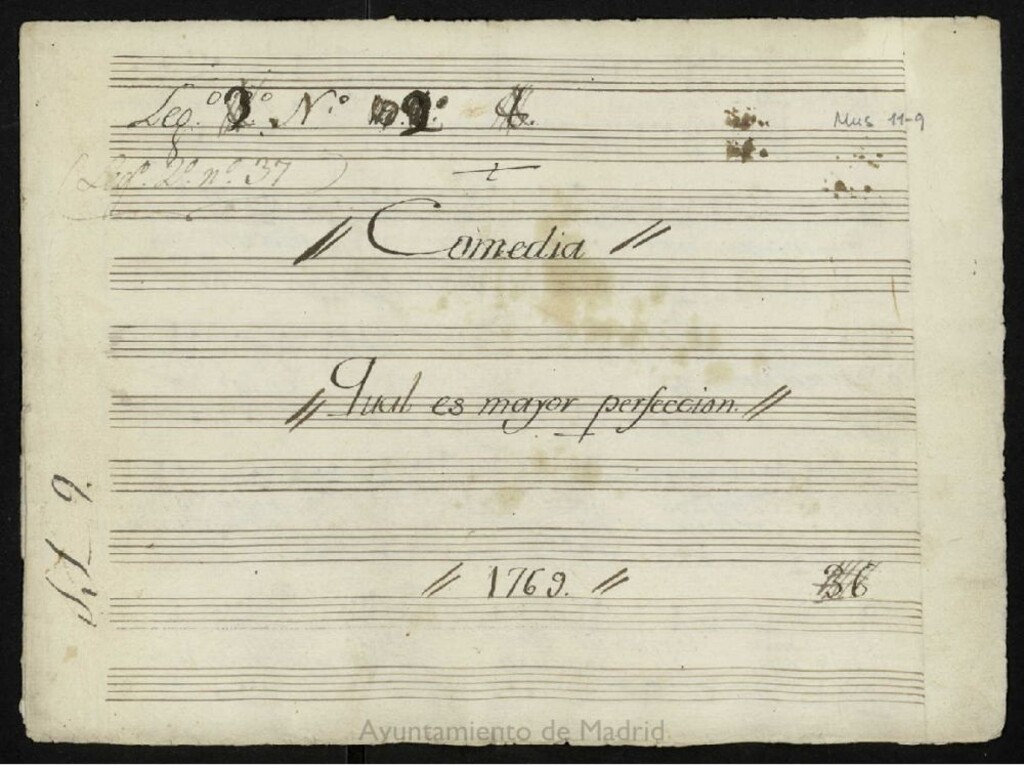 Leg.º 2º. Nº 2º.
Mus 11-9
(Leg.º 2º. nº. 37)
// Comedia //
// Qual es mayor perfeccion. //
// 1769. //
36
9.
Ayuntamiento de Madrid